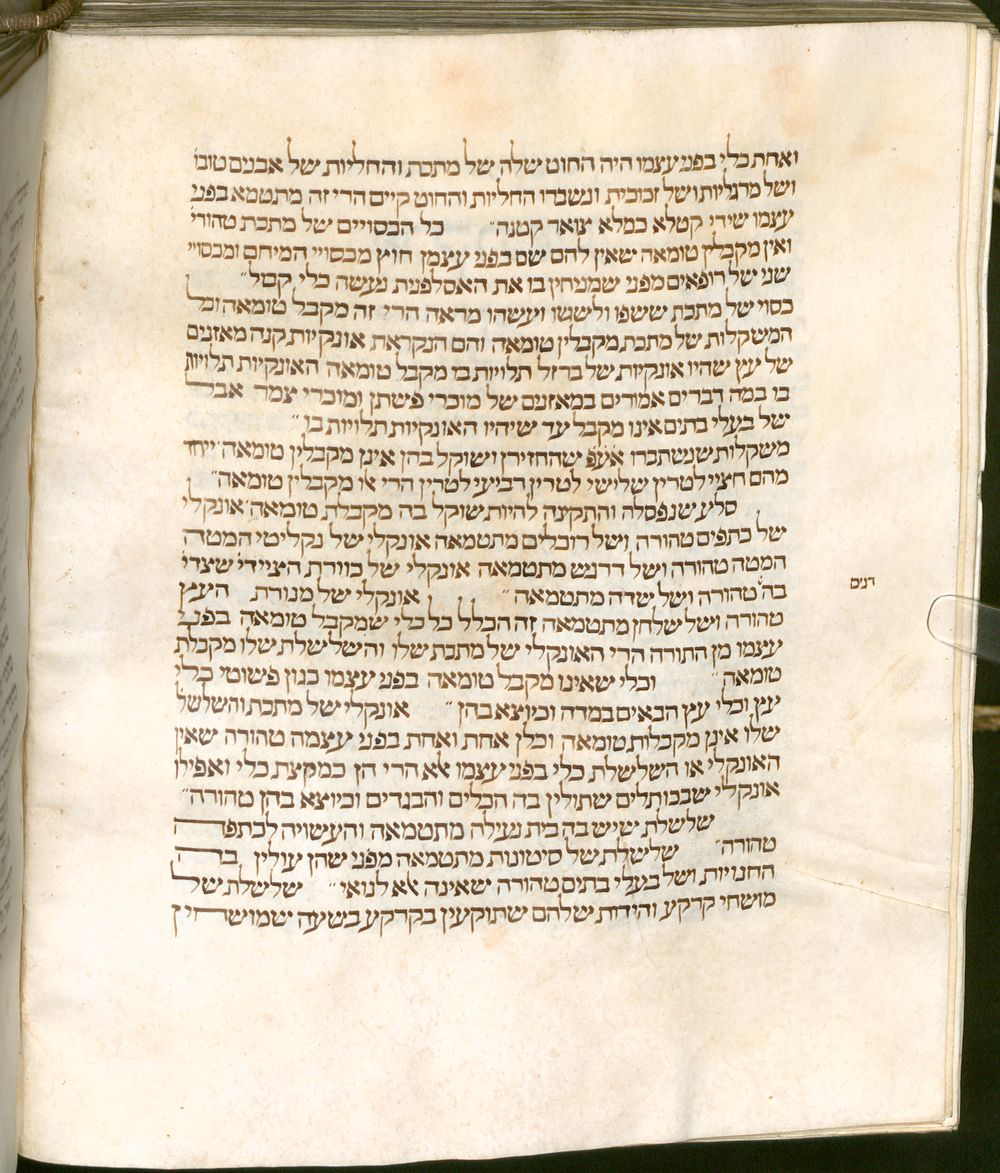 ואחת כלי בפני עצמו היה החוט שלה של מתכת והחליות של אבנים טובו׳
ושל מרגליות ושל זכוכית ונשברו החליות והחוט קיים הרי זה מתטמא בפני
עצמו שירי קטלא כמלא צואר קטנה״ כל הכסויים של מתכת טהורי׳
ואין מקבלין טומאה שאין להם שם בפני עצמן חוץ מכסויי המיחם ומכסויי
שני של רופאים מפני שמניחין בו את האסלפנית נעשה כלי קבול״
כסוי של מתכת ששפו ולטשו ועשהו מראה הרי זה מקבל טומאה וכל
המשקלות של מתכת מקבלין טומאה והם הנקראת אונקיות קנה מאזנים
של עץ שהיו אונקיות של ברזל תלויות בו מקבל טומאה האונקיות תלויות
בו במה דברים אמורים במאזנים של מוכרי פשתן ומוכרי צמר אבל
של בעלי בתים אינו מקבל עד שיהיו האונקיות תלויות בו״
משקלות שנשתברו אע״פ שהחזירן ושוקל בהן אינן מקבלין טומאה ייחד
מהם חציי לטרין שלישי לטרין רביעי לטרין הרי אלו מקבלין טומאה״
סלע שנפסלה והתקינה להיות שוקל בה מקבלת טומאה אונקלי
של כתפים טהורה ושל רוכלים מתטמאה אונקלי של נקליטי המטה
המטה טהורה ושל דרגש מתטמאה אונקלי של כוורת הציידי׳ שצדי׳
דגים
בה טהורה ושל שדה מתטמאה״ אונקלי של מנורת העץ
טהורה ושל שלחן מתטמאה זה הכלל כל כלי שמקבל טומאה בפני
עצמו מן התורה הרי האונקלי של מתכת שלו והשלשלת שלו מקבלת
טומאה״ וכלי שאינו מקבל טומאה בפני עצמו כגון פשוטי כלי
עץ וכלי עץ הבאים במדה וכיוצא בהן״ אונקלי של מתכת והשלשל
שלו אינן מקבלות טומאה וכלן אחת ואחת בפני עצמה טהורה שאין
האונקלי או השלשלת כלי בפני עצמו אלא הרי הן כמקצת כלי ואפילו
אונקלי שבכותלים שתולין בה הכלים והבגדים וכיוצא בהן טהורה״
שלשלת שיש בה בית נעילה מתטמאה והעשויה לכתפה
טהורה״ שלשלת של סיטונות מתטמאה מפני שהן עולין בה
החנויות ושל בעלי בתים טהורה שאינה אלא לנואי״ שלשלת של
מושחי קרקע והידות שלהם שתוקעין בקרקע בשעה שמושחין